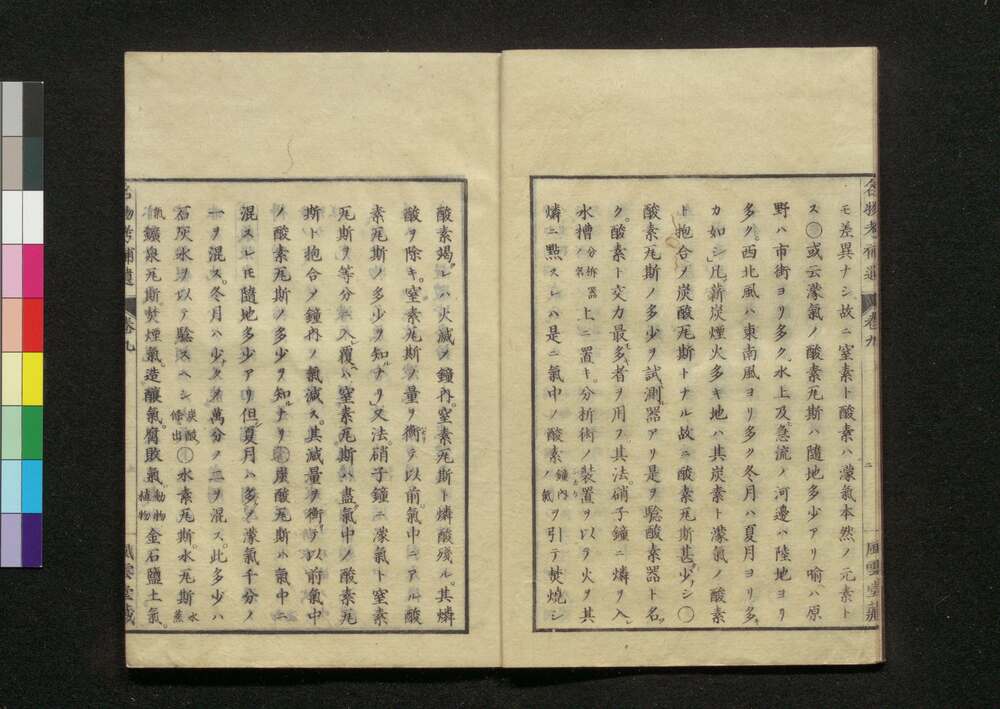 名物考補遺 卷九 二 風雲堂藏
モ差異ナシ故ニ窒素ト酸素ハ濛氣本然ノ元素ト
ス○或云濛氣ノ酸素瓦斯ハ隨地多少アリ喻ハ原
野ハ市街ヨリ多ク水上及急流ノ河邊ハ陸地ヨリ
多ク。西北風ハ東南風ヨリ多ク冬月ハ夏月ヨリ多
カ如シ凡薪炭煙火多キ地ハ其炭素ト濛氣ノ酸素
ト抱合メ炭酸瓦斯トナル故ニ酸素瓦斯甚少シ○
酸素瓦斯ノ多少ヲ試測器アリ是ヲ驗酸素器ト名
ク。酸素ト交力最多者ヲ用フ。其法。硝子鐘ニ燐ヲ入
水槽分析器ノ名上ニ置キ。分析術ノ装置ヲ以ラ火ヲ其
燐ニ點スレハ是ニ氣中ノ酸素鐘內ノ氣ヲ引テ焚燒シ
酸素竭レハ火滅メ鐘內。窒素瓦斯ト燐酸殘ル。其燐
酸ヲ除キ。窒素瓦斯ノ量ヲ衡テ以前。氣中ニアル酸
素瓦斯ノ多少ヲ知ナリ又法。硝子鐘ニ濛氣ト窒素
瓦斯ヲ等分ニ入覆ハ窒素瓦斯ハ盡氣中ノ酸素瓦
斯ト抱合メ鐘內ノ氣減ス。其減量ヲ衡テ以前氣中
ノ酸素瓦斯ノ多少ヲ知ナリ○炭酸瓦斯ハ氣中ニ
混スレモ隨地多少アリ但夏月ハ多メ濛氣千分ノ
一ヲ混ス。冬月ハ少クメ萬分ノ二ヲ混ス。此多少ハ
石灰水ヲ以テ驗スヘシ炭酸條出○水素瓦斯。水瓦斯水蒸
氣鑛泉瓦斯焚煙氣。造釀氣。腐敗氣。動物植物金石鹽土氣。
名物考補遺 卷九 風雲堂藏